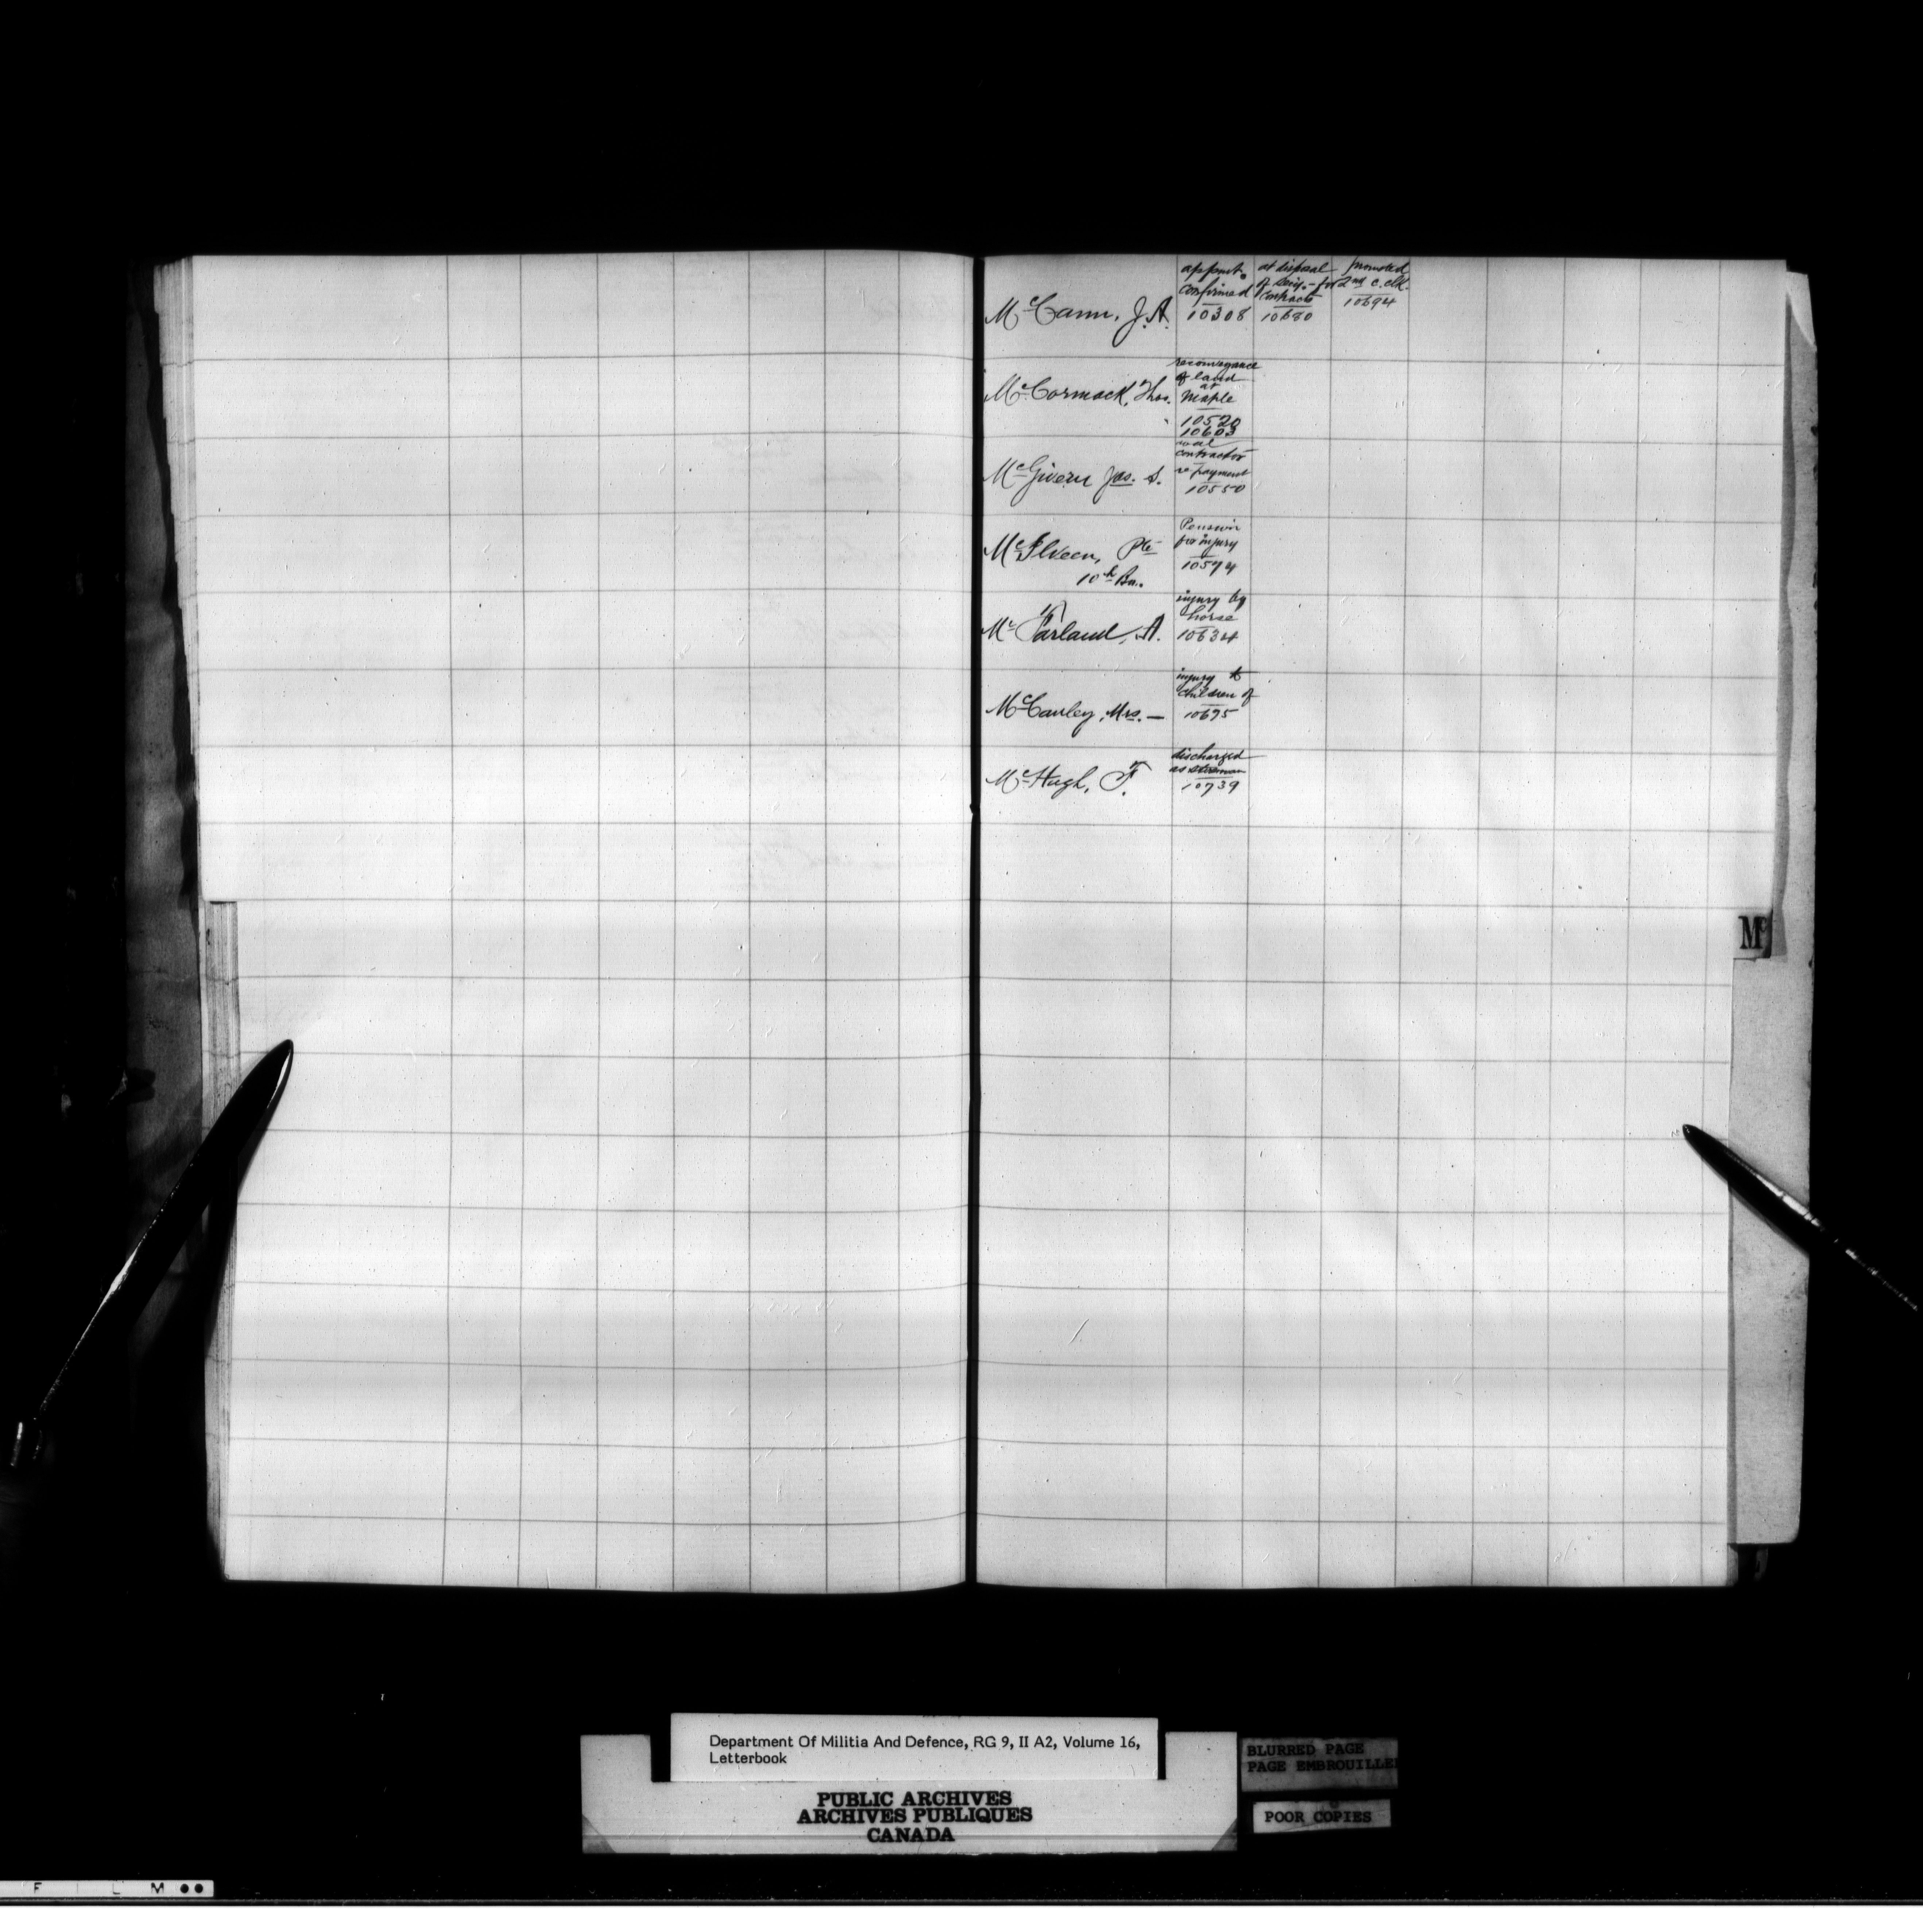 McCann, J. A.
appoint.
confirmed
10308
at disposal
of
contracts
10680
promoted
2nd c. clk.
10694
McCormack, Thos.
reconveyance
of land
at
Maple
10520
10603
McGivern Jas. S.
coal
contractor
re payment
10550
McIlveen, Pte
10th Bn.
Pension
for injury
10574
McFarland, A.
injury by
horse
10634
McCauley, Mrs. —
injury to
children of
10695
McHugh, F.
discharged
as
10739
Mc
Department Of Militia And Defence, RG 9, II A2, Volume 16,
Letterbook
PUBLIC ARCHIVES
ARCHIVES PUBLIQUES
CANADA
BLURRED PAGE
PAGE EMBROUILLE
POOR COPIES
F I L M